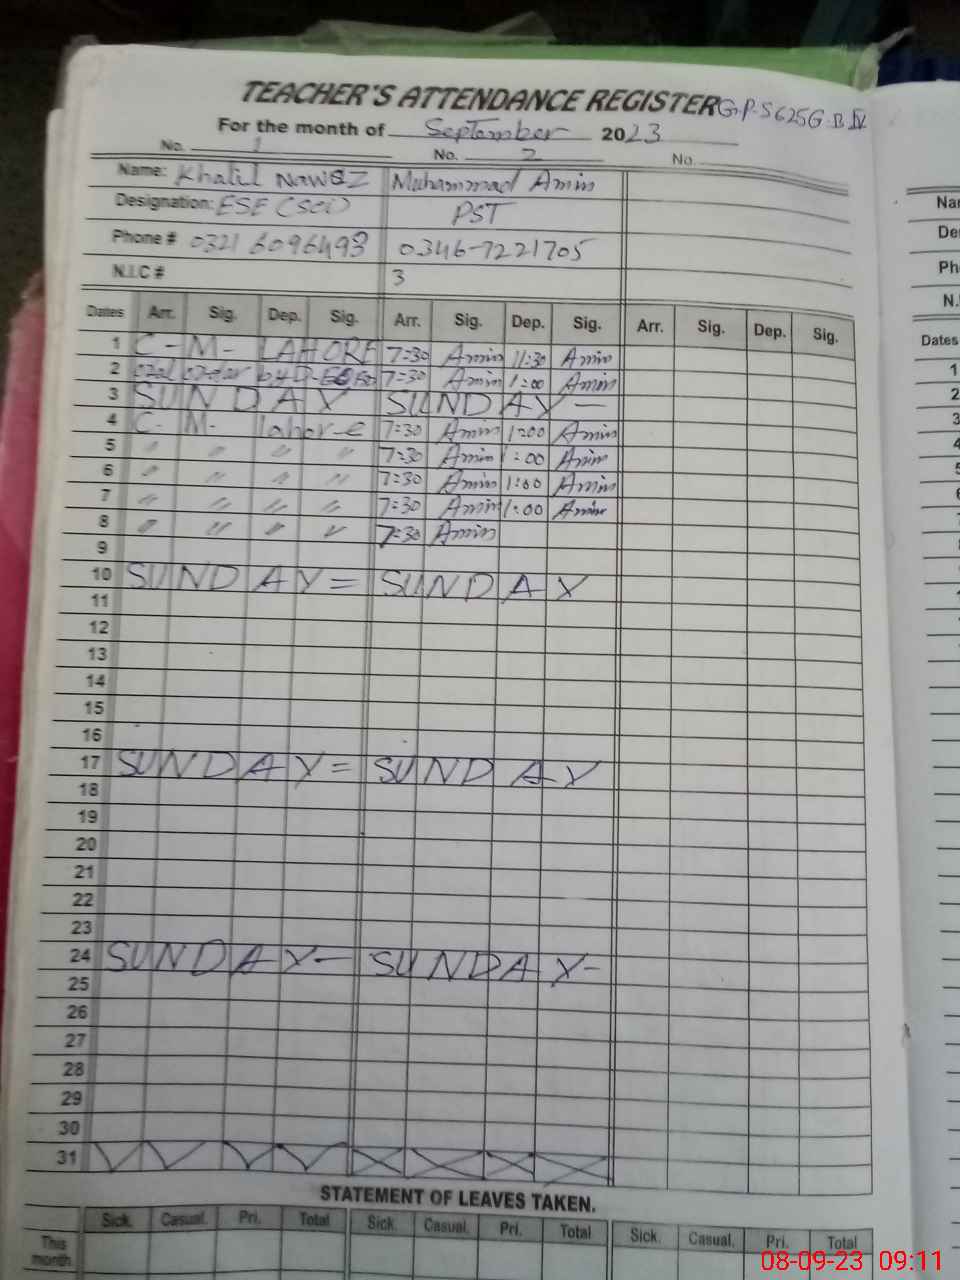 TEACHER'S ATTENDANCE REGISTER G.P.S 625 G.B IV
For the month of September 2023
No. 1 No. 2 No.
Name: Khalil Nawaz Muhammad Amin
Designation: ESE (SCI) PST
Phone # 0321 6096493 0346-7221705
N.I.C # 3
Dates Arr. Sig. Dep. Sig. Arr. Sig. Dep. Sig. Arr. Sig. Dep. Sig.
1 C-M- LAHORE 7=30 Amin 11:30 Amin
2 oral order by 7=30 Amin 1:00 Amin
3 SUNDAY SUNDAY -
4 C. M. Lahor-e 7=30 Amin 1:00 Amin
5 " " " " 7:30 Amin 1:00 Amin
6 " " " " 7:30 Amin 1:00 Amin
7 " " " " 7:30 Amin 1:00 Amin
8 " " " " 7=30 Amin
9
10 SUNDAY = SUNDAY
11
12
13
14
15
16
17 SUNDAY = SUNDAY
18
19
20
21
22
23
24 SUNDAY - SUNDAY -
25
26
27
28
29
30
31
STATEMENT OF LEAVES TAKEN.
Sick. Casual. Pri. Total Sick. Casual. Pri. Total Sick. Casual. Pri. Total
This month
Nar
De
Ph
N.
Dates
1
2
3
4
5
6
7
08-09-23 09:11